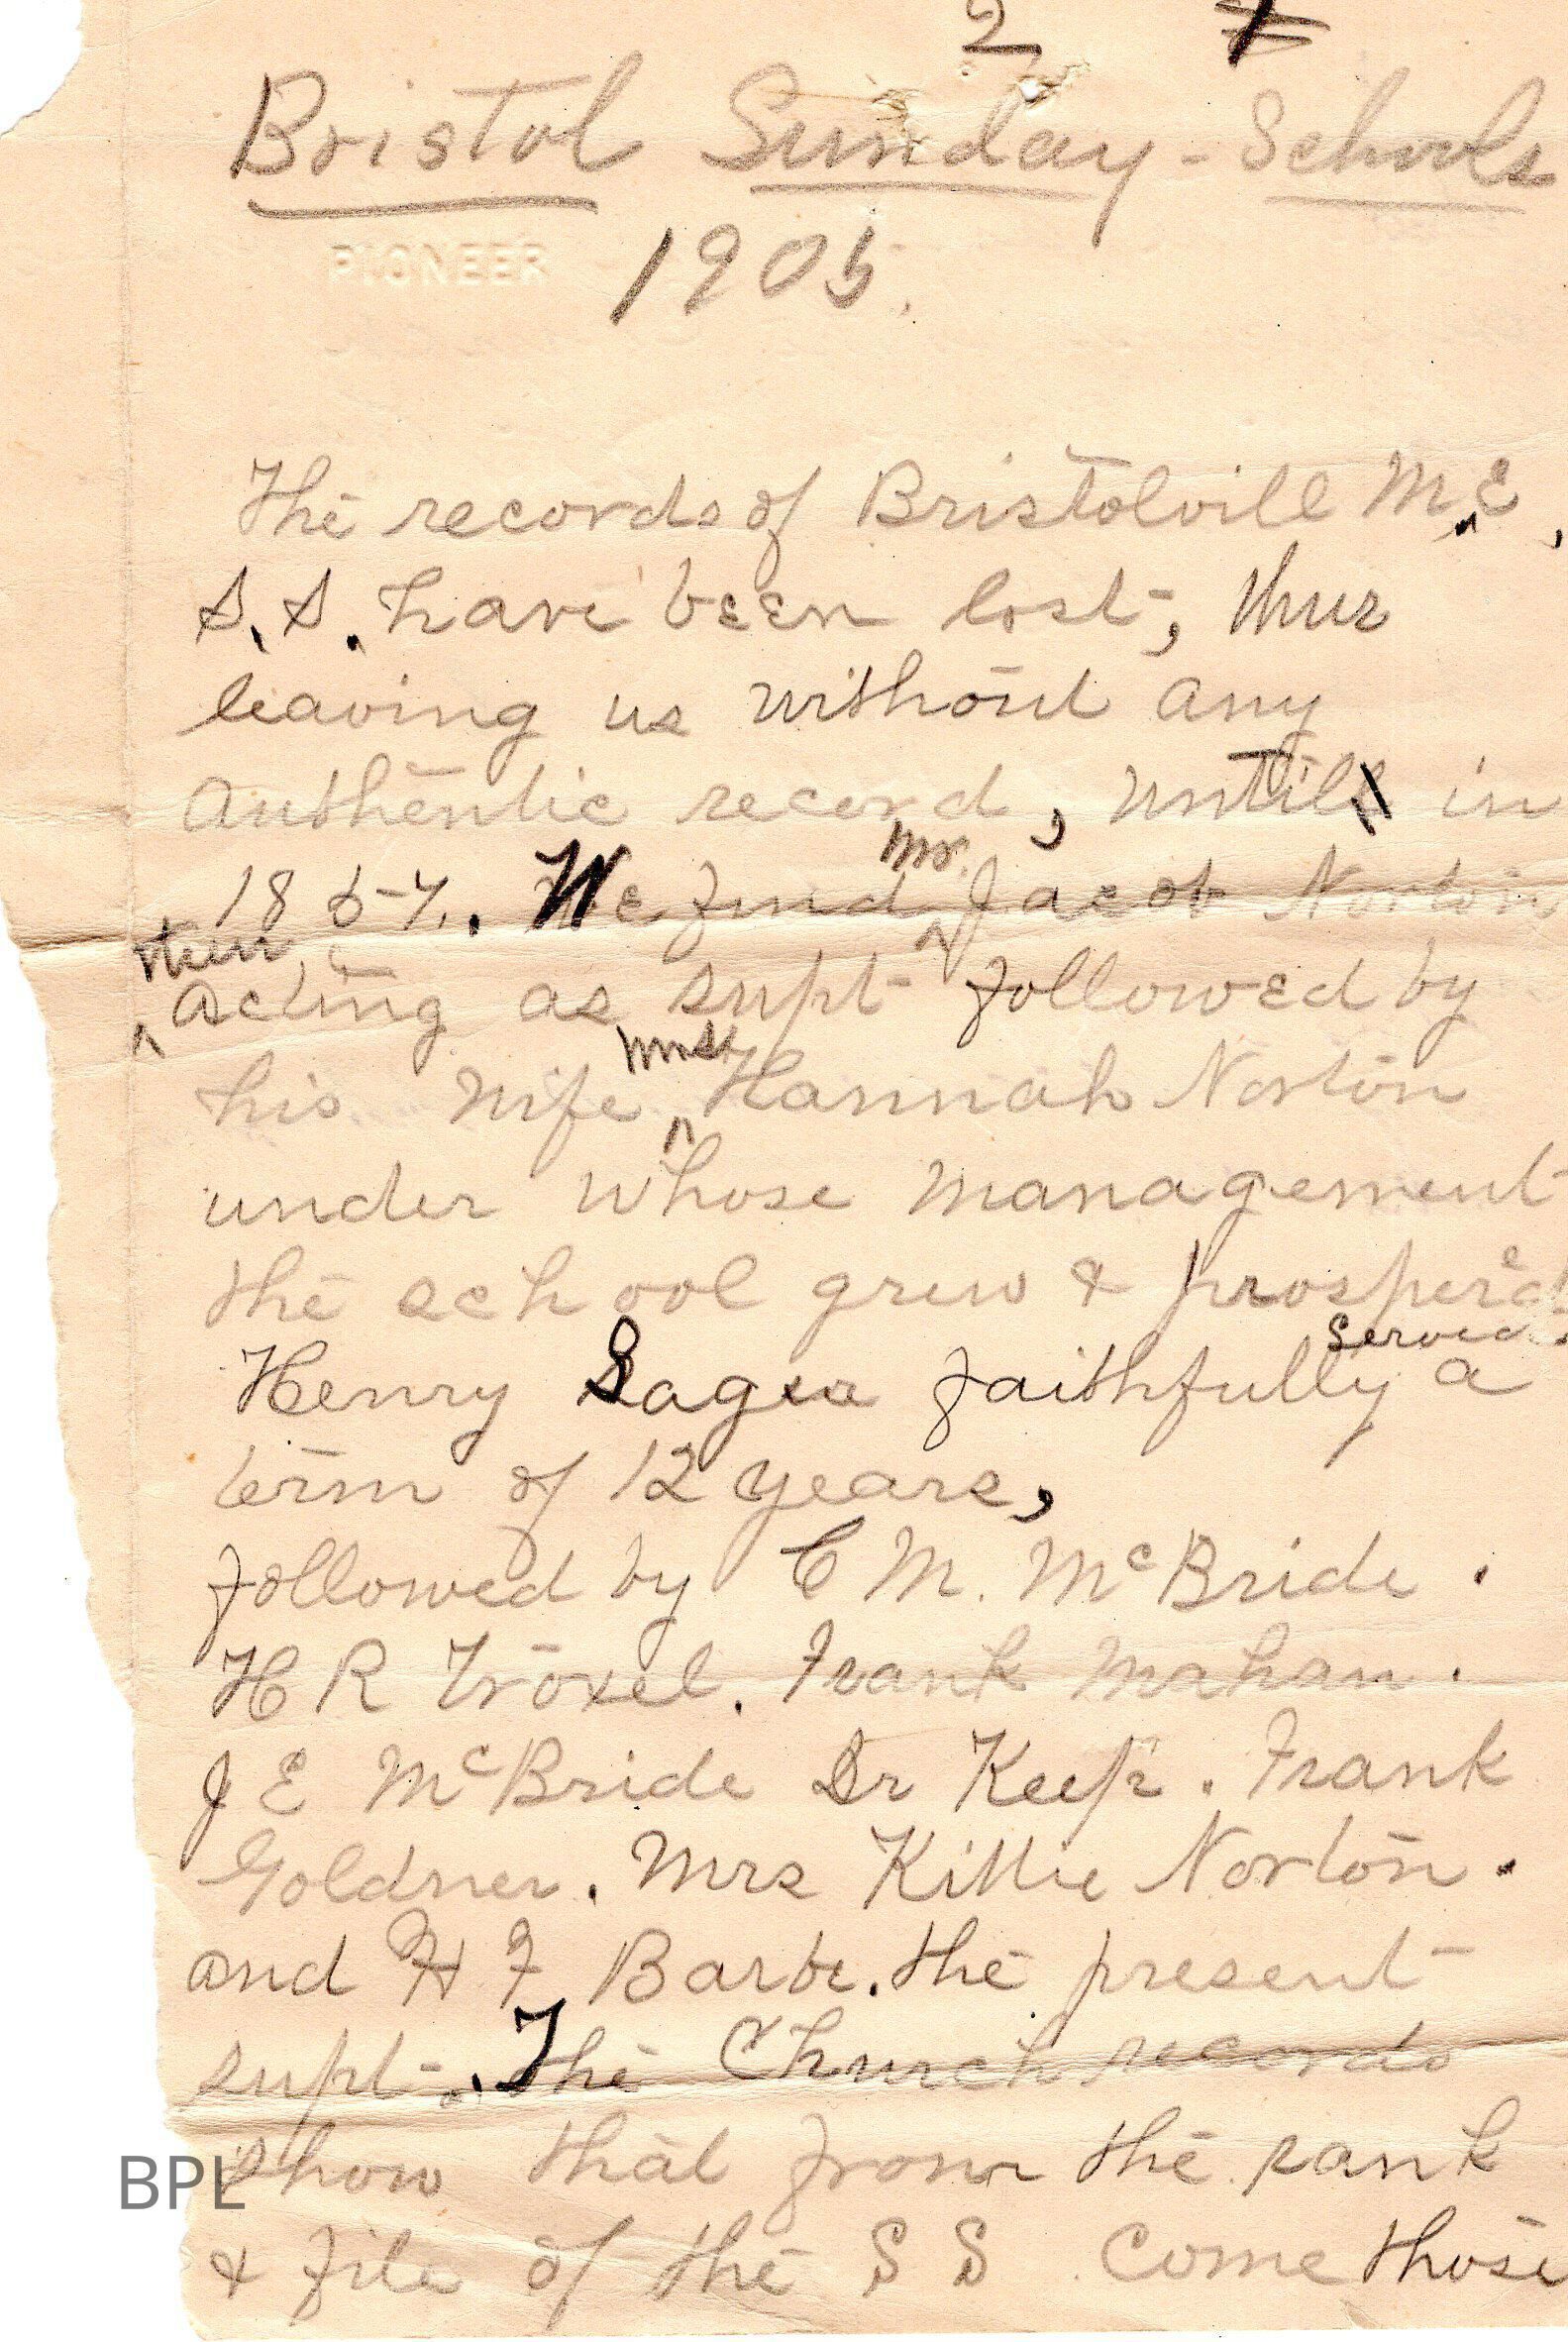 2
Bristol Sunday-Schools
PIONEER
1905.
The records of Bristolvill M.E.
S.S. have been lost, thus
leaving us without any
Authentic record, until in
We find Mr. Jacob Norton
then acting as supt followed by
his wife Mrs Hannah Norton
under whose management
the school grew & prospered.
Henry Sager faithfully served a
term of 12 years,
followed by C M. McBride.
H R Troxel. Frank Mahan.
J E McBride Dr Keep. Frank
Goldner. Mrs Kittie Norton.
and H F Barbe. the present
supt. The Church records
show that from the rank
& file of the S S come those
BPL